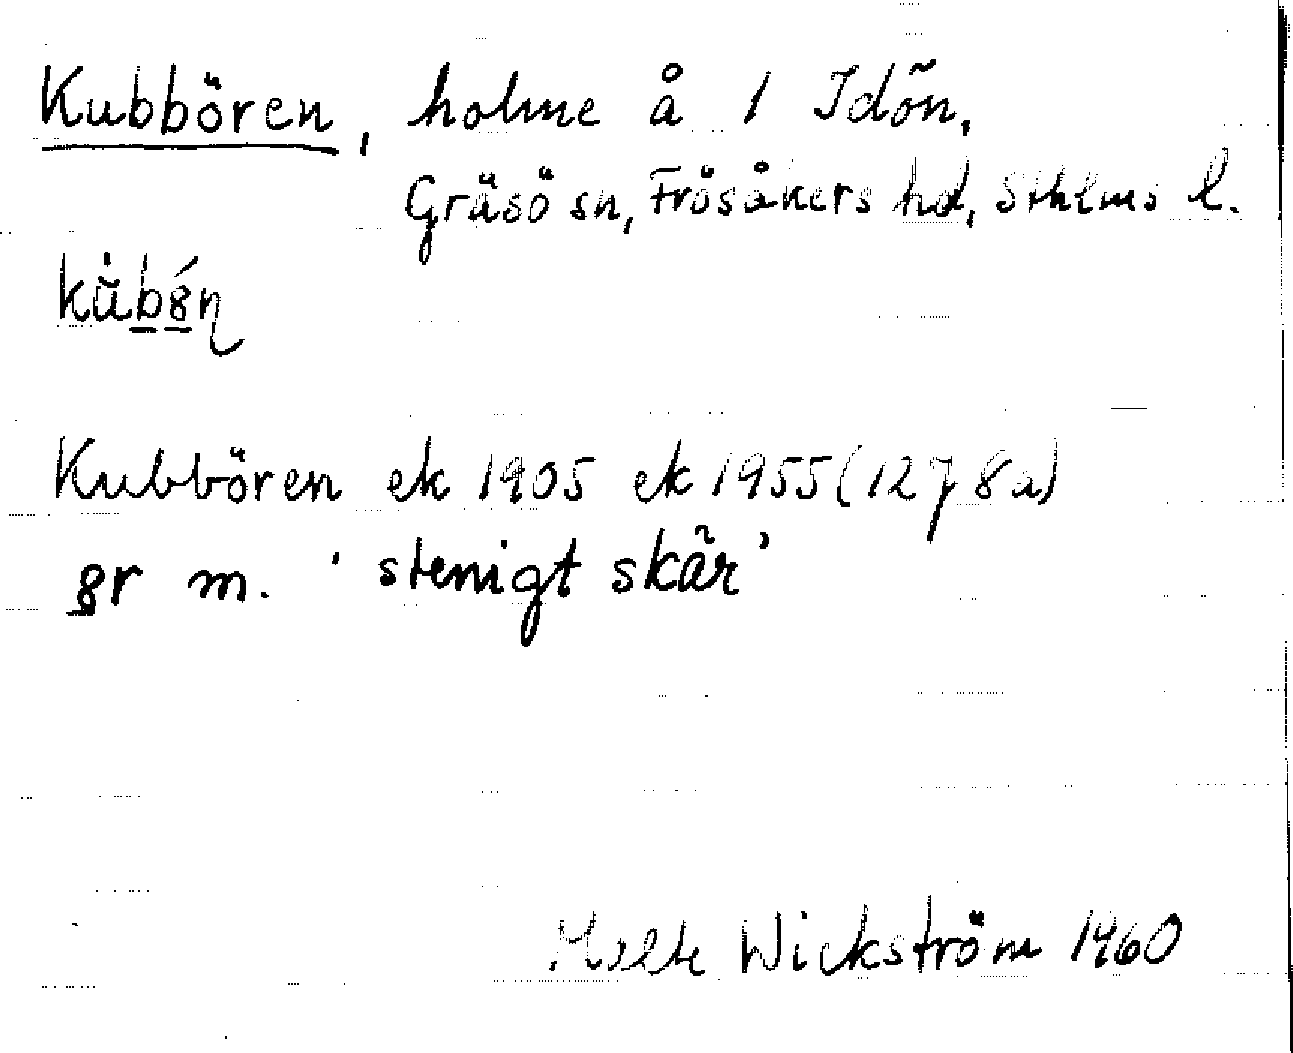 Kubbören, holme å 1 Idön,
Gräsö sn, Frösåkers hd, Sthlms l.
Kubbören ek 1905 ek 1955 (12 7 8 a)
m. 'stenigt skär'
Wickström 1960